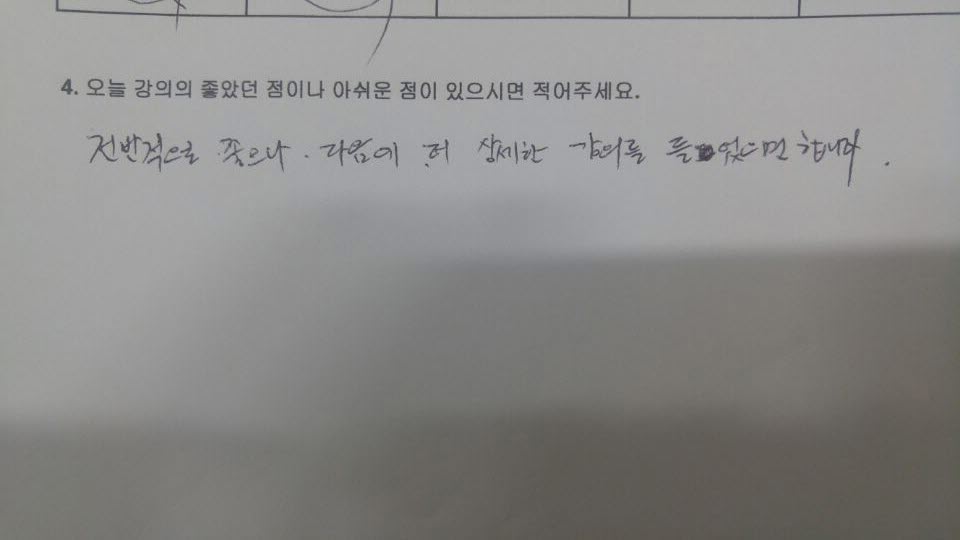 4. 오늘 강의의 좋았던 점이나 아쉬운 점이 있으시면 적어주세요.
전반적으로 좋으나. 다음에 더 상세한 강의를 들었으면 합니다.